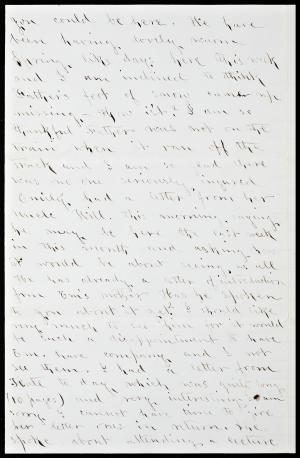 you could be here. We have
been having lovely warm
Spring like days here this week
and I am inclined to think
Father's feet of snow
missing. How is it? I am so
thankful Father was not on the
train when it ran off the
track and I am so glad there
was no one seriously injured
Emily had a letter from her
Uncle Will this morning saying
he may be here the last week
in this month and asking
it would be about seeing us all
He has already a letter of introduction
from Em's mother. Has he spoken
to you about it yet. I should like
very much to see him for it would
be such a disappointment to have
Em. have company and I not
see them. I had a letter from
Kate to day, which was quite long
(10 pages) and very interesting. I am
sorry I cannot have time to give
her letter one in return. She
spoke about attending a lecture